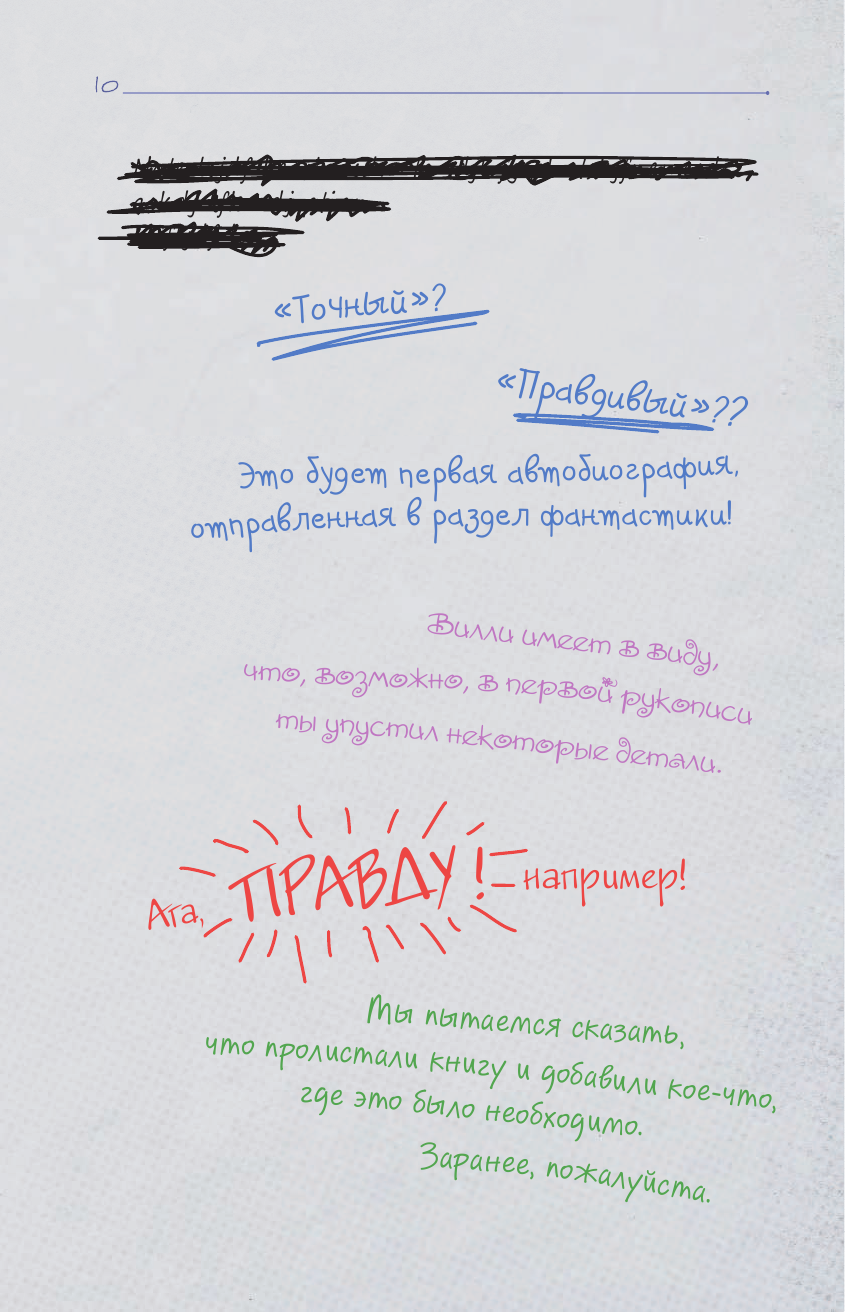 10
«Точный»?
«Правдивый»??
Это будет первая автобиография,
отправленная в раздел фантастики!
Вилли имеет в виду,
что, возможно, в первой рукописи
ты упустил некоторые детали.
Ага, ПРАВДУ! например!
Ты пытаемся сказать,
что пролистали книгу и добавили кое-что,
где это было необходимо.
Заранее, пожалуйста.